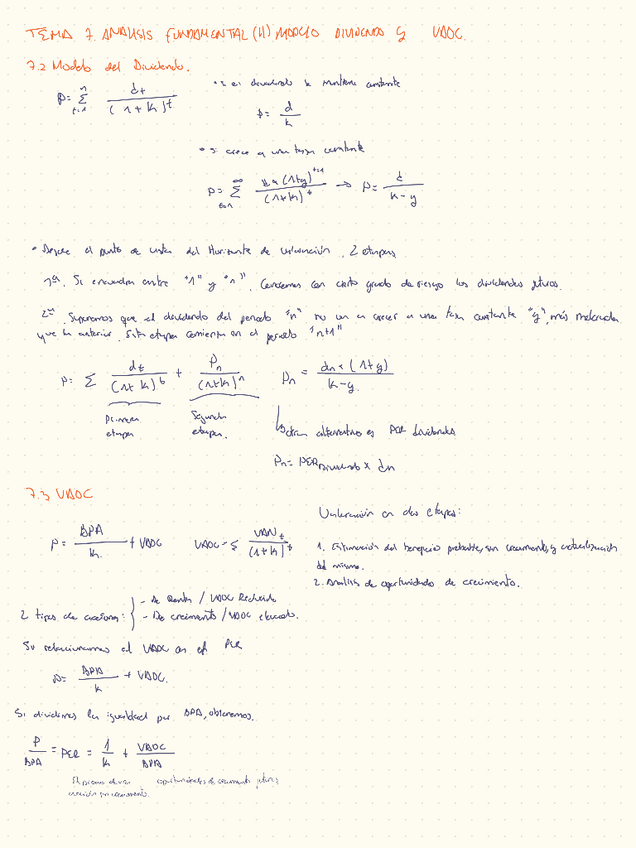 TEMA 7. ANALISIS FUNDAMENTAL (II) MODELO DIVIDENDO y VAOC.
7.2 Modelo del Dividendo.
• si el dividendo se mantiene constante
P = Σ dt / (1+k)^t
P = d / k
• si crece a una tasa constante
→ P = d / k-g
• Desde el punto de vista del Horizonte de valoración, 2 etapas
1ª. Se encuentra entre "1" y "n". Conocemos con cierto grado de riesgo los dividendos futuros.
2ª. Suponemos que el dividendo del periodo "n" va a crecer a una tasa constante "g", más moderada
que la anterior. Esta etapa comienza en el periodo "n+1"
P = Σ dt / (1+k)^t + Pn / (1+k)^n Pn = dn × (1+g) / k-g.
Primera etapa Segunda etapa.
otra alternativa es PER dividendo
Pn = PER Dividendo × dn
7.3 VAOC
Valoración en dos etapas:
P = BPA / k + VAOC VAOC = Σ VANt / (1+k)^t
1. Estimación del beneficio probable, sin crecimiento, y actualización
del mismo.
2. Analisis de oportunidades de crecimiento.
2 tipos de acciones: - De Renta / VAOC Reducido
- De crecimiento / VAOC elevado.
Si relacionamos el VAOC con el PER
P = BPA / k + VAOC.
Si dividimos la igualdad por BPA, obtenemos.
P / BPA = PER = 1 / k + VAOC / BPA
oportunidades de crecimiento futuras